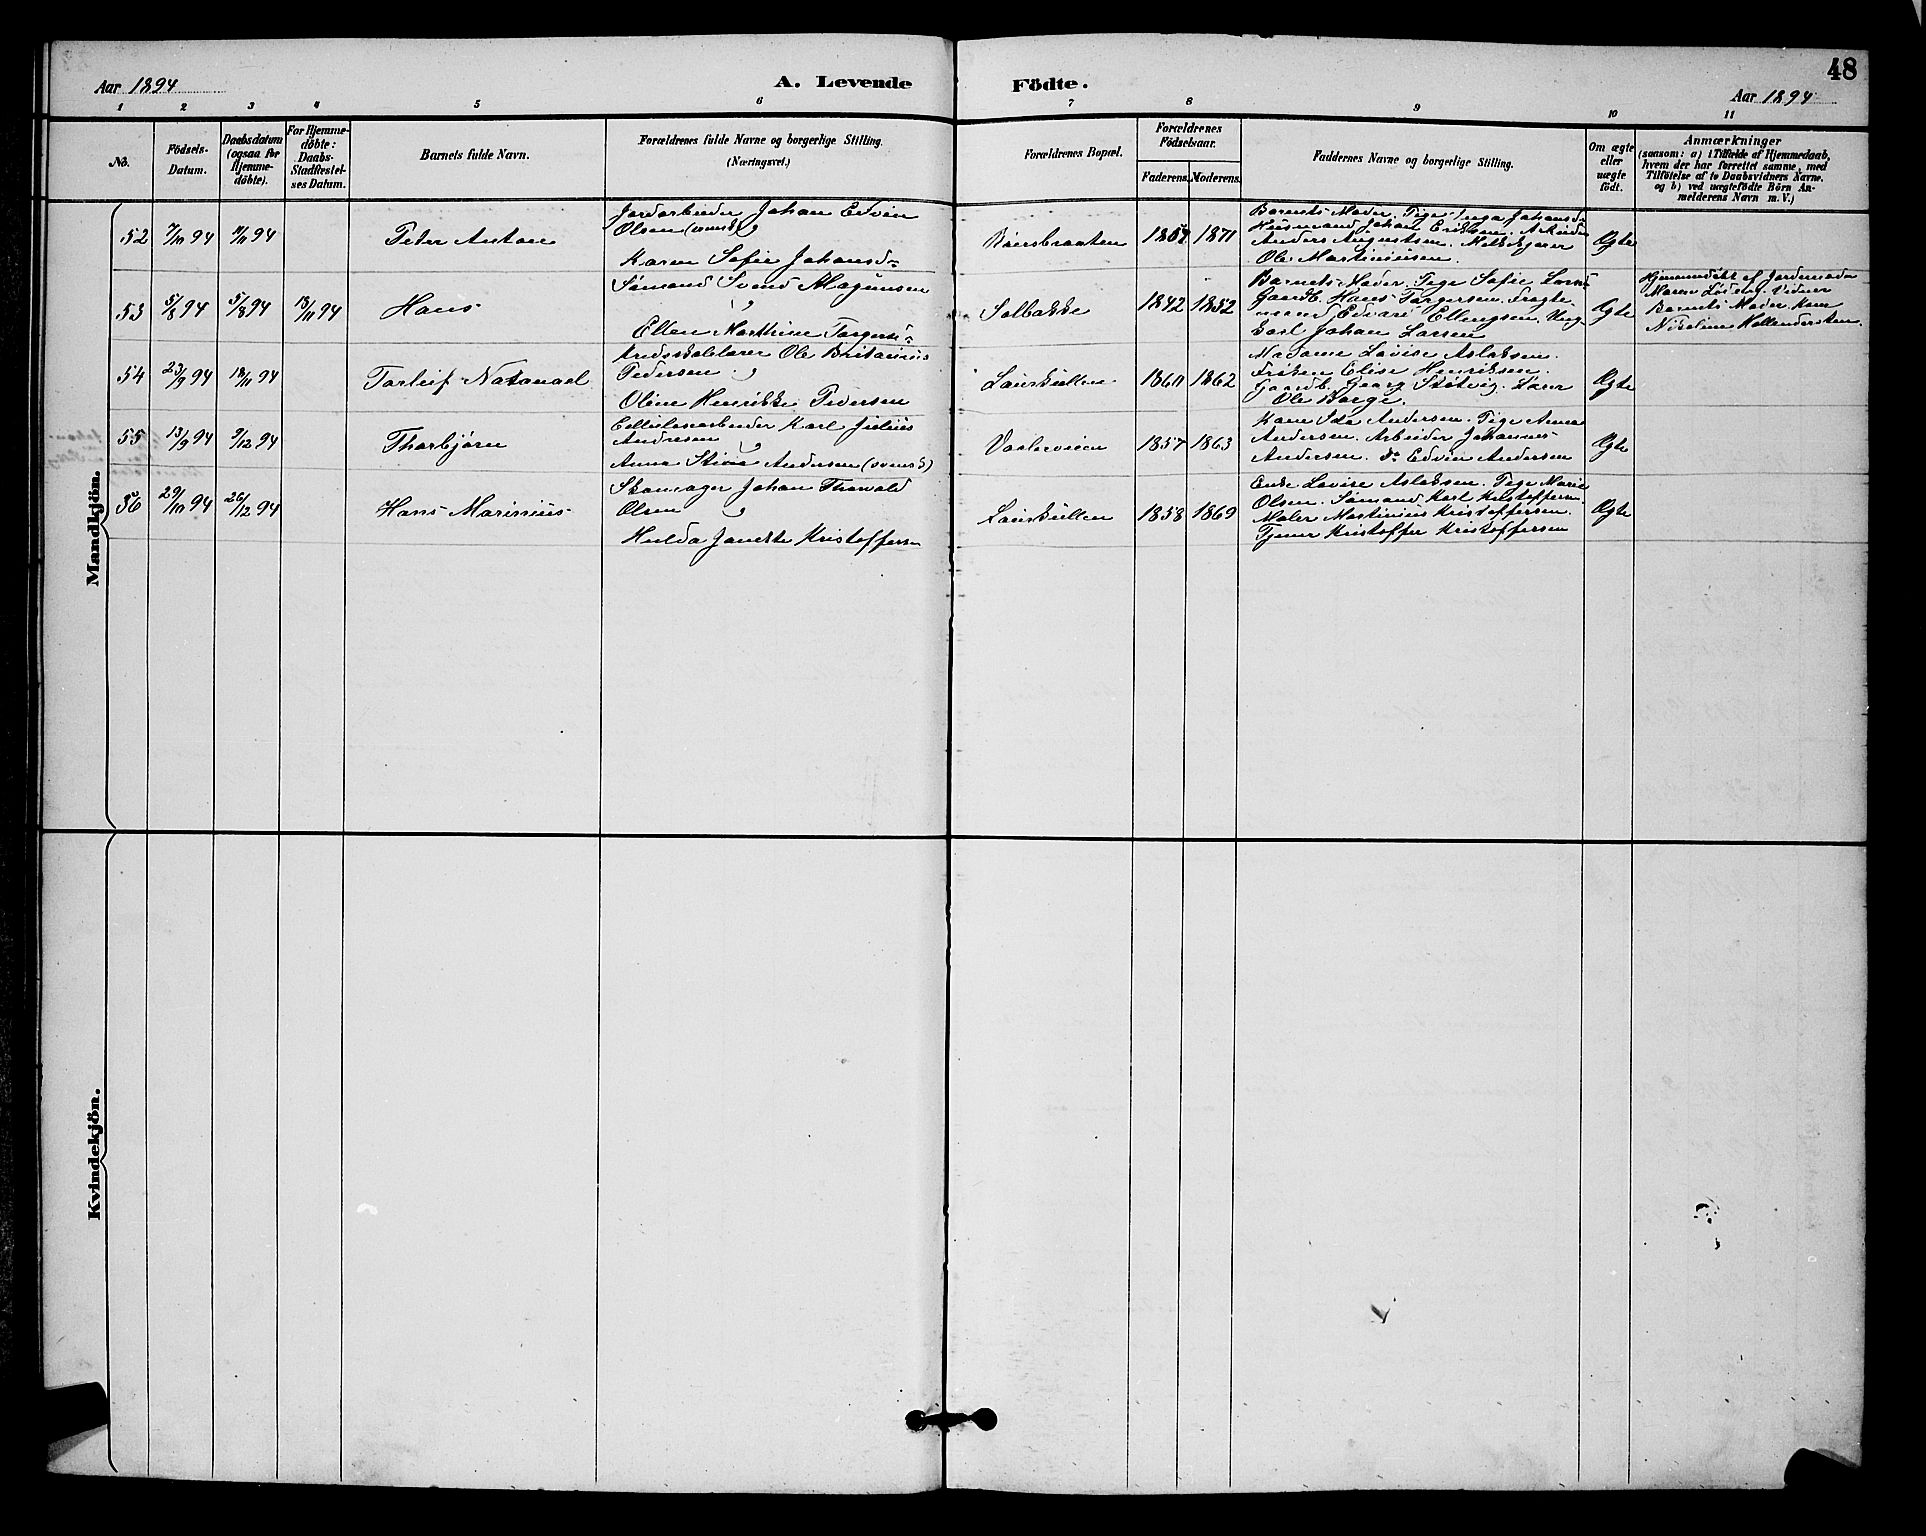 48
Aar 1894
A. Levende
Födte.
Aar 1894
1 2 3 4 5 6 7 8 9 10 11
No.
Födsels-
Datum.
Daabsdatum
(ogsaa for
Hjemme-
döbte).
For Hjemme-
döbte:
Daabs-
Stadfæstel-
ses Datum.
Barnets fulde Navn.
Forældrenes fulde Navne og borgerlige Stilling.
(Næringsvei.)
Forældrenes Bopæl.
Forældrenes
Födselsaar.
Faderens. Moderens.
Faddernes Navne og borgerlige Stilling.
Om ægte
eller
uægte
födt.
Anmærkninger
(saasom: a) i Tilfælde af Hjemmedaab,
hvem der har forrettet samme, med
Tilföielse af to Daabsvidners Navne.
og b) ved uægtefödte Börn An-
melderens Navn m. V.)
Mandkjön.
52 7/10 94 94
Peter Anton
Jordarbeider Johan Edvin
Olsen (svensk)
Karen Sofie Johansd-
1871
Barnets Moder. Pige Inga Johansd-
Husmand Johan Eriksen. Arbeider
Anders Augustsen.
Ole Martiniusen.
Ægte
53 5/8 94 5/8 94 18/11 94
Hans
Sømand Svend Magnusen
Ellen Marthine Torgers-
Solbakke
1842 1852
Barnets Moder. Pige Sofie
Gaardb. Hans Torgersen. Fragte-
mand Edvard Ellingsen. Ung.
Carl Johan Larsen
Ægte
Hjemmedöbt af Jordemoder
Maren Vidner
Barnets Moder Kone
Nikoline
54 23/9 94 18/11 94
Torleif Natanael
Kredsskolelærer Ole Britanius
Pedersen
Oline Henrikke Pedersen
Lauskullen
1860 1862
Madame Lovise Aslaksen.
Frøken Elise Henriksen.
Gaardb. Georg Lærer
Ole Borge.
Ægte
55 13/9 94 9/12 94
Thorbjørn
Cellulosearbeider Karl Julius
Andresen
Anna Andersen (svensk)
Vaaleveien
1857 1863
Kone Ida Andersen. Pige Anna
Andersen. Arbeider Johannes
Andersen. do Edvin Andersen
Ægte
56 29/10 94 26/12 94
Hans Marinius
Skomager Johan Thorvald
Olsen
Hulda Janette Kristoffersen
Lauskullen
1858 1869
Enke Lovise Aslaksen. Pige Marie
Olsen. Sømand Karl Kristoffersen.
Maler Martinius Kristoffersen.
Tjener Kristoffer Kristoffersen
Ægte
Kvindekjön.